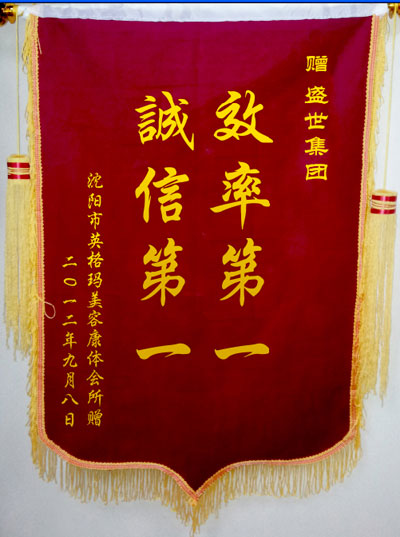 赠盛世集团
效率第一
誠信第一
沈阳市英格玛美容康体会所赠
二〇一二年九月八日